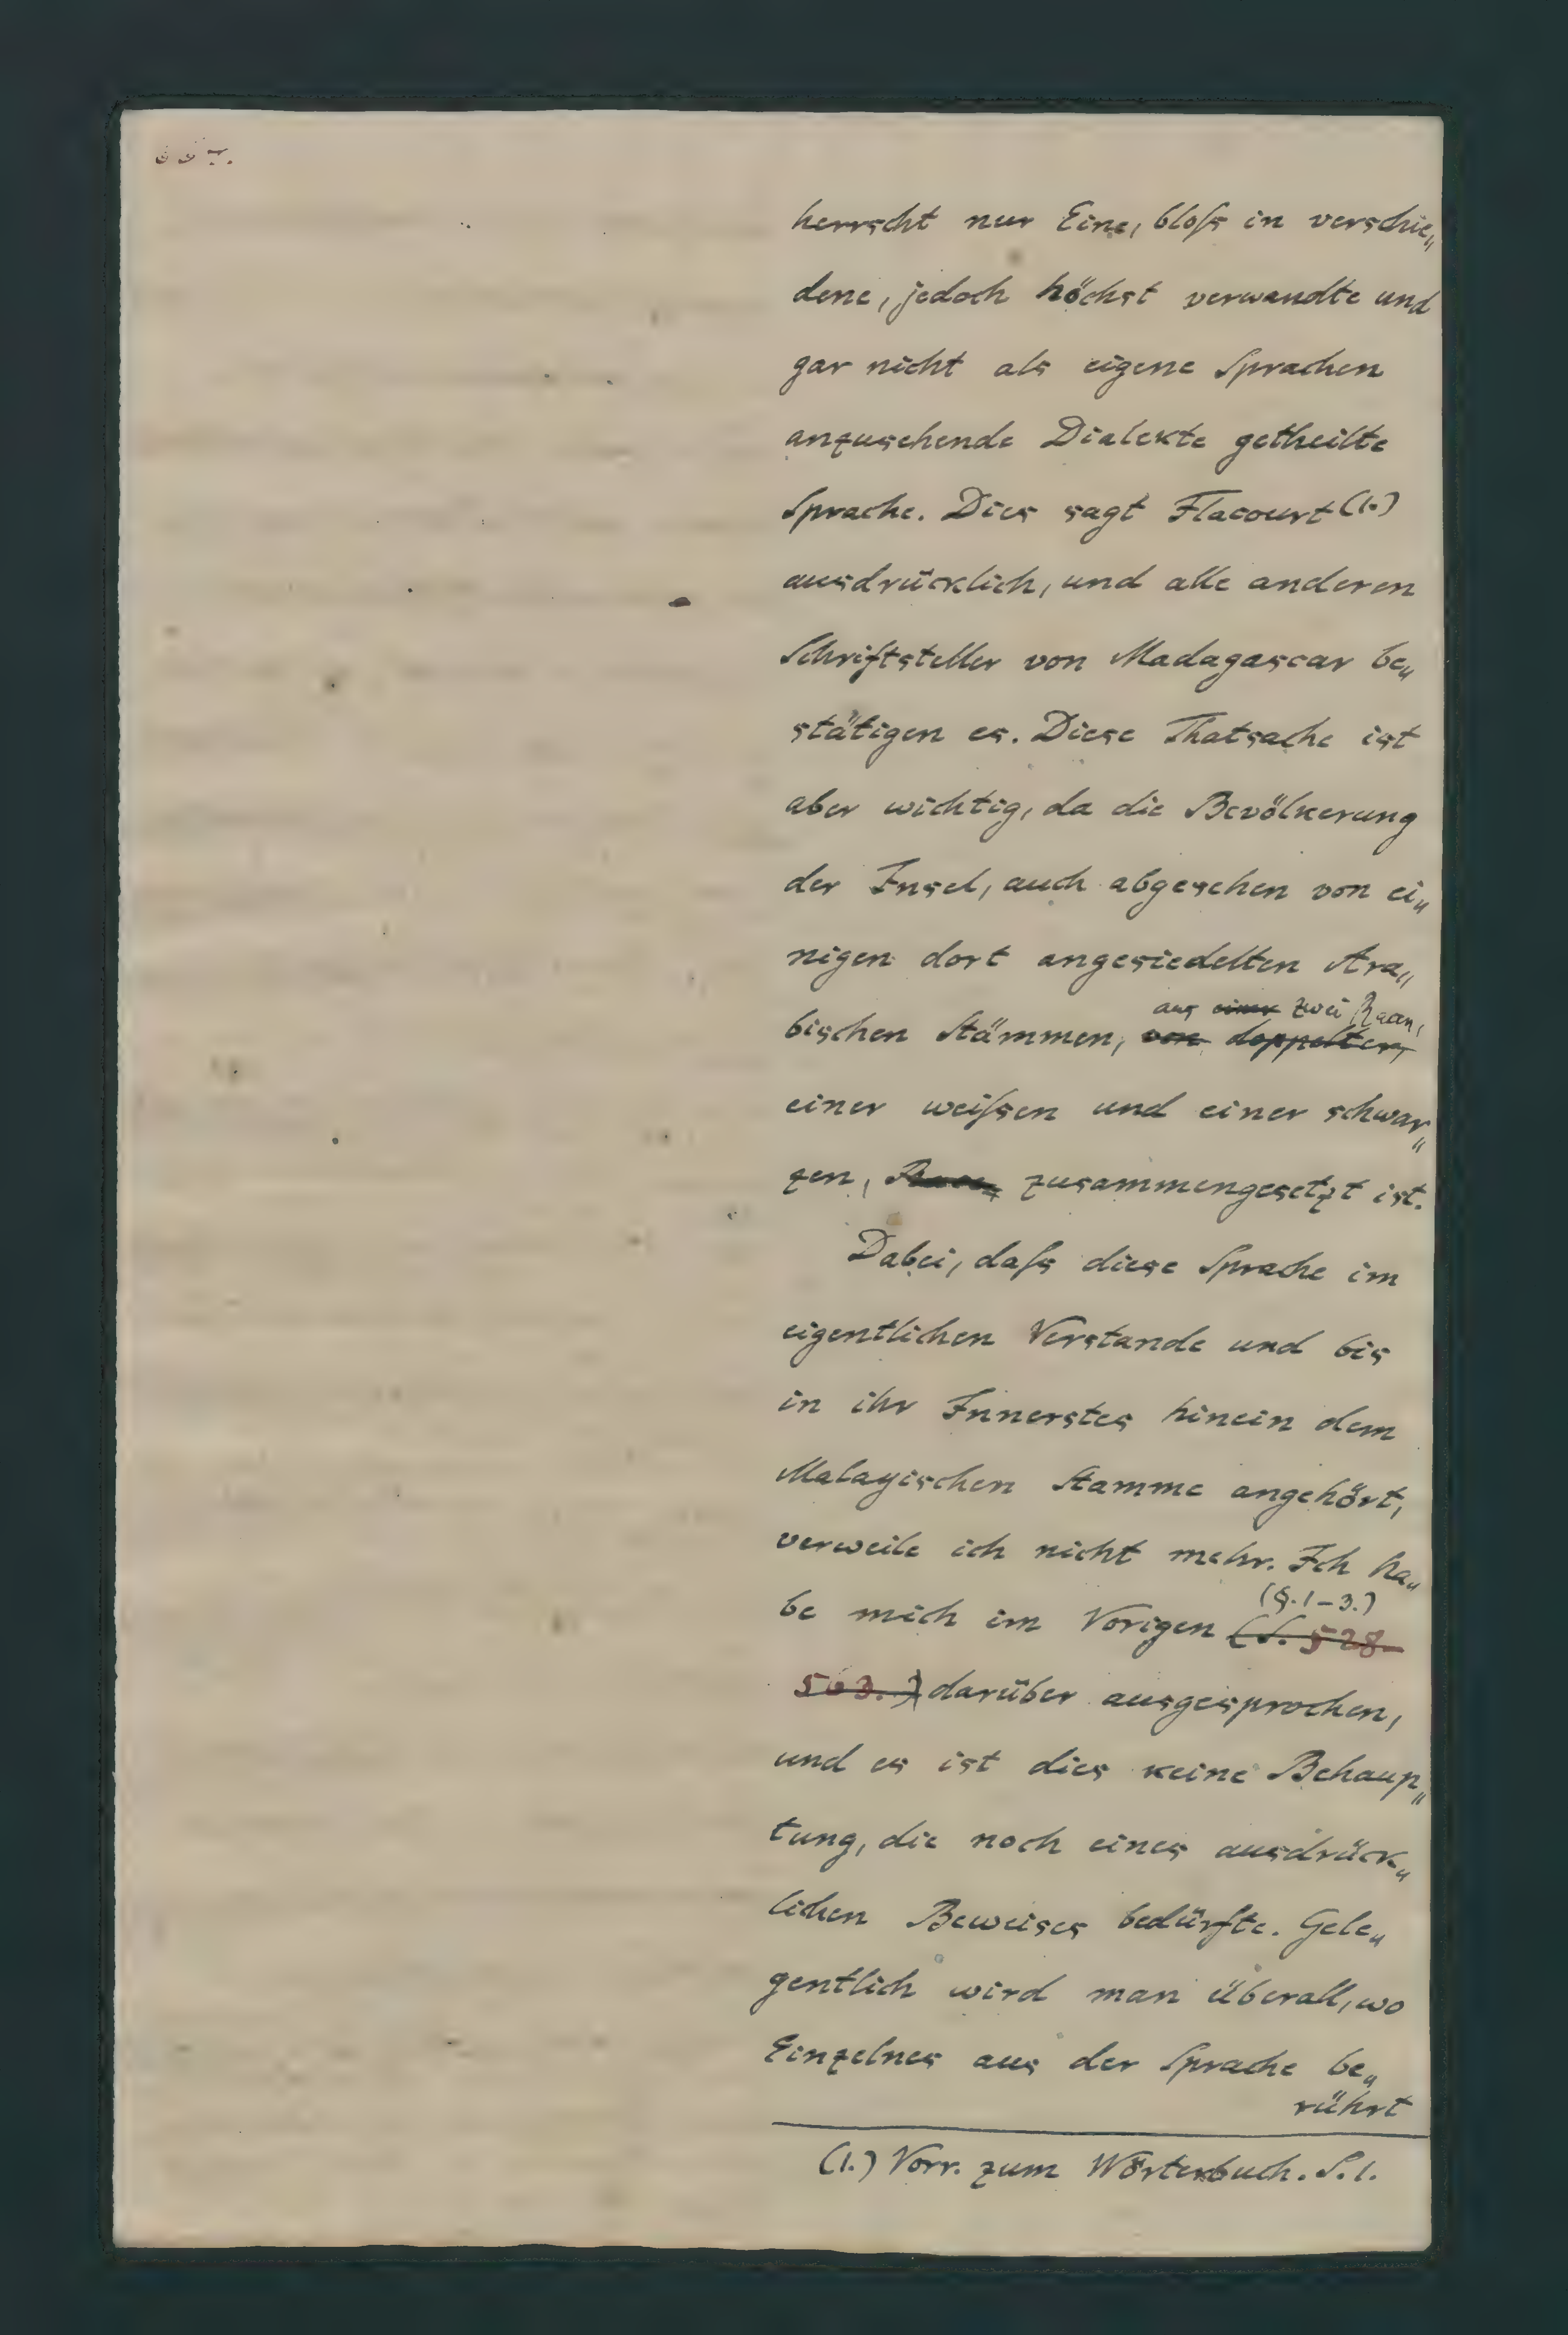 herrscht nur Eine, bloſs in verschie„
dene, jedoch höchst verwandte und
gar nicht als eigene Sprachen
anzusehende Dialekte getheilte
Sprache. Dies sagt Flacourt (1.)
ausdrücklich, und alle anderen
Schriftsteller von Madagascar be„
stätigen es. Diese Thatsache ist
aber wichtig, da die Bevölkerung
der Insel, auch abgesehen von ei„
nigen dort angesiedelten Ara„
aus einer zwei Racen,
bischen Stämmen, von doppelter,
einer weiſsen und einer schwar„
zen, Race, zusammengesetzt ist.
Dabei, daſs diese Sprache im
eigentlichen Verstande und bis
in ihr Innerstes hinein dem
Malayischen Stamme angehört,
verweile ich nicht mehr. Ich ha„
(§.1–3.)
be mich im Vorigen (S. 528–
563.) darüber ausgesprochen,
und es ist dies keine Behaup„
tung, die noch eines ausdrück„
lichen Beweises bedürfte. Gele„
gentlich wird man überall, wo
Einzelnes aus der Sprache be„
rührt
(1.) Vorr. zum Wörterbuch. S. 1.